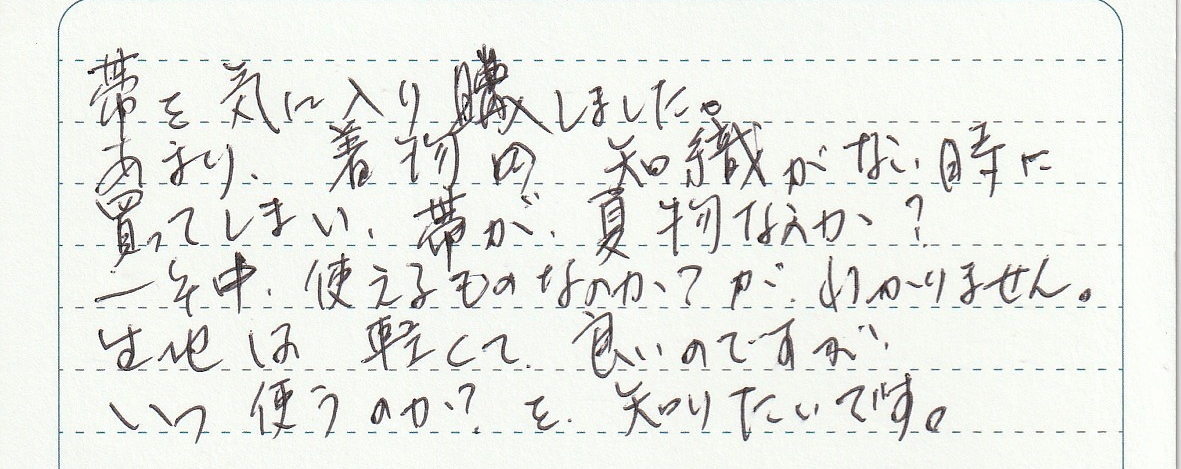 帯を気に入り購入しました。
あまり、着物の知織がない時に
買ってしまい、帯が、夏物なんか?
一年中、使えるものなのか?が、わかりません。
生地は軽くて、良いのですが、
いつ使うのか?を、知りたいです。